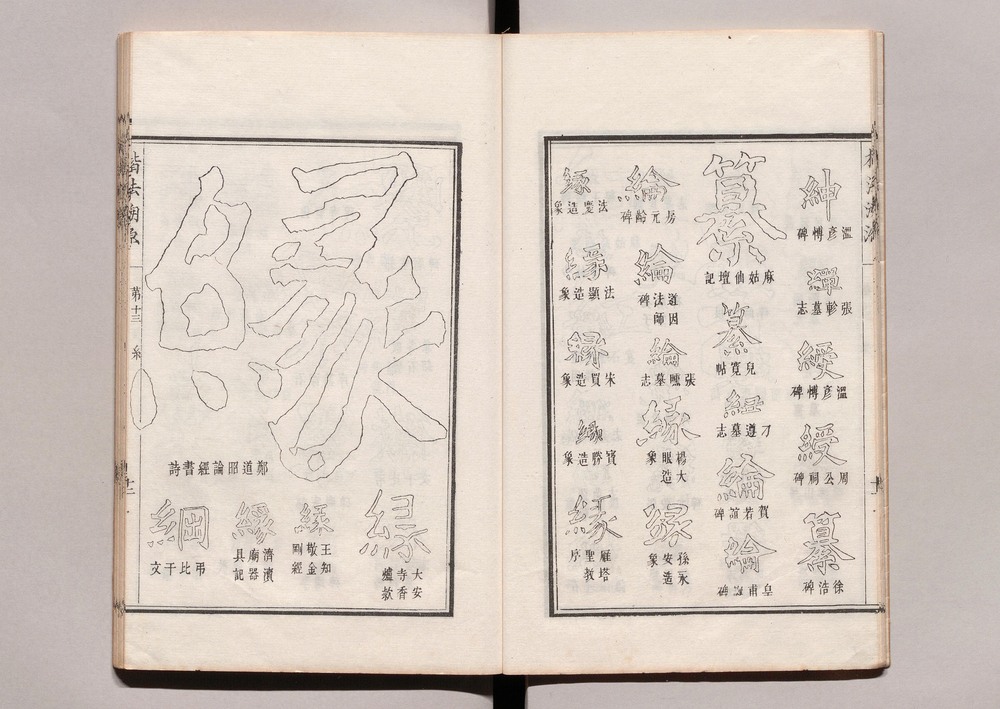 紳
溫彥博碑
繟
張軫墓志
綬
溫彥博碑
綬
周公祠碑
纂
徐浩碑
纂
麻姑仙壇記
纂
兒寬帖
紐
刁遵墓志
綸
賀若誼碑
綸
皇甫誕碑
綸
房元齡碑
綸
道因法師碑
綸
張𤣱墓志
緣
楊大眼造象
緣
孫永安造象
緣
法慶造象
緣
法顯造象
緣
宋買造象
緣
寶勝造象
緣
雁塔聖教序
楷法溯源
第十三
糸
十一
緣
鄭道昭論經書詩
緣
大安寺香爐款
緣
王知敬金剛經
緣
濟瀆廟器具記
綱
弔比干文